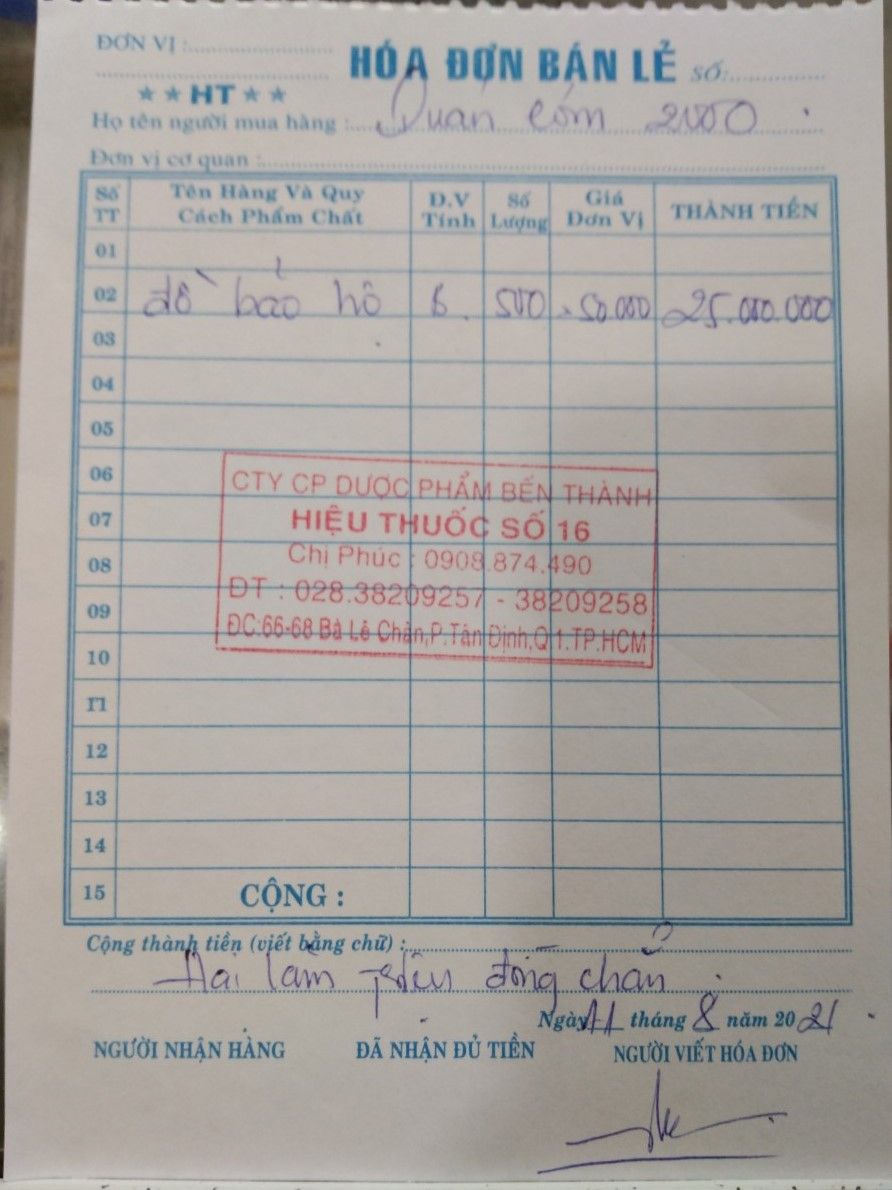 ĐƠN VỊ :
HÓA ĐƠN BÁN LẺ SỐ:
★ ★ HT ★ ★
Họ tên người mua hàng : Quán cơm 2000
Đơn vị cơ quan :
Số TT Tên Hàng Và Quy Cách Phẩm Chất Đ.V Tính Số Lượng Giá Đơn Vị THÀNH TIỀN
01
02 đồ bảo hộ B. 500 50.000 25.000.000
03
04
05
06
07
08
09
10
11
12
13
14
15 CỘNG :
CTY CP DƯỢC PHẨM BẾN THÀNH
HIỆU THUỐC SỐ 16
Chị Phúc : 0908.874.490
ĐT : 028.38209257 - 38209258
ĐC:66-68 Bà Lê Chân,P.Tân Định,Q.1.TP.HCM
Cộng thành tiền (viết bằng chữ) :
Hai lăm triệu đồng chẵn.
Ngày 11 tháng 8 năm 2021
NGƯỜI NHẬN HÀNG ĐÃ NHẬN ĐỦ TIỀN NGƯỜI VIẾT HÓA ĐƠN